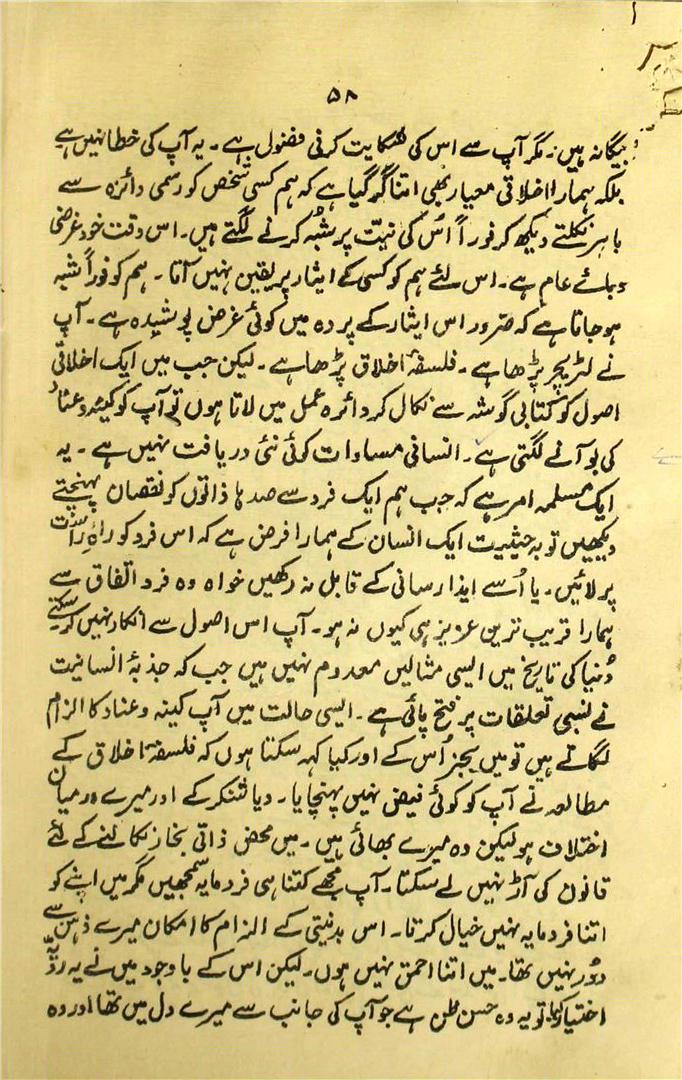 ۵۸
بیگانہ ہیں۔ مگر آپ سے اس کی شکایت کرنی فضول ہے۔ یہ آپ کی خطا نہیں ہے
بلکہ ہمارا اخلاقی معیار بھی اتنا گر گیا ہے کہ ہم کسی شخص کو رسمی دائرہ سے
باہر نکلتے دیکھ کر فوراً اُس کی نیت پر شُبہ کرنے لگتے ہیں۔ اس وقت خود غرضی
وبائے عام ہے۔ اس لئے ہم کو کسی کے ایثار پر یقین نہیں آتا۔ ہم کو فوراً شبہ
ہو جاتا ہے کہ ضرور اس ایثار کے پردہ میں کوئی غرض پوشیدہ ہے۔ آپ
نے لٹریچر پڑھا ہے۔ فلسفۂ اخلاق پڑھا ہے۔ لیکن جب میں ایک اخلاقی
اصول کو کتابی گوشہ سے نکال کر دائرہ عمل میں لاتا ہوں تو آپ کو کینہ و عناد
کی بو آنے لگتی ہے۔ انسانی مساوات کوئی نئی دریافت نہیں ہے۔ یہ
ایک مسلمہ امر ہے کہ جب ہم ایک فرد سے صدہا ذاتوں کو نقصان پہنچتے
دیکھیں تو بہ حیثیت ایک انسان کے ہمارا فرض ہے کہ اس فرد کو راہِ راست
پر لائیں۔ یا اُسے ایذا رسانی کے قابل نہ رکھیں خواہ وہ فرد اتفاق سے
ہمارا قریب ترین عزیز ہی کیوں نہ ہو۔ آپ اس اصول سے انکار نہیں کر سکتے
دُنیا کی تاریخ میں ایسی مثالیں معدوم نہیں ہیں جب کہ جذبۂ انسانیت
نے نسبی تعلقات پر فتح پائی ہے۔ ایسی حالت میں آپ کینہ و عناد کا الزام
لگاتے ہیں تو میں بجز اُس کے اور کیا کہہ سکتا ہوں کہ فلسفۂ اخلاق کے
مطالعہ نے آپ کو کوئی فیض نہیں پہنچایا۔ دیا شنکر کے اور میرے درمیان
اختلاف ہو لیکن وہ میرے بھائی ہیں۔ میں محض ذاتی بخار نکالنے کے لئے
قانون کی آڑ نہیں لے سکتا۔ آپ مجھے کتنا ہی فرومایہ سمجھیں مگر میں اپنے کو
اتنا فرومایہ نہیں خیال کرتا۔ اس بدنیتی کے الزام کا امکان میرے ذہن سے
دُور نہیں تھا۔ میں اتنا احمق نہیں ہوں۔ لیکن اس کے باوجود میں نے یہ رویّہ
اختیار کیا تو یہ وہ حسن ظن ہے جو آپ کی جانب سے میرے دل میں تھا اور وہ